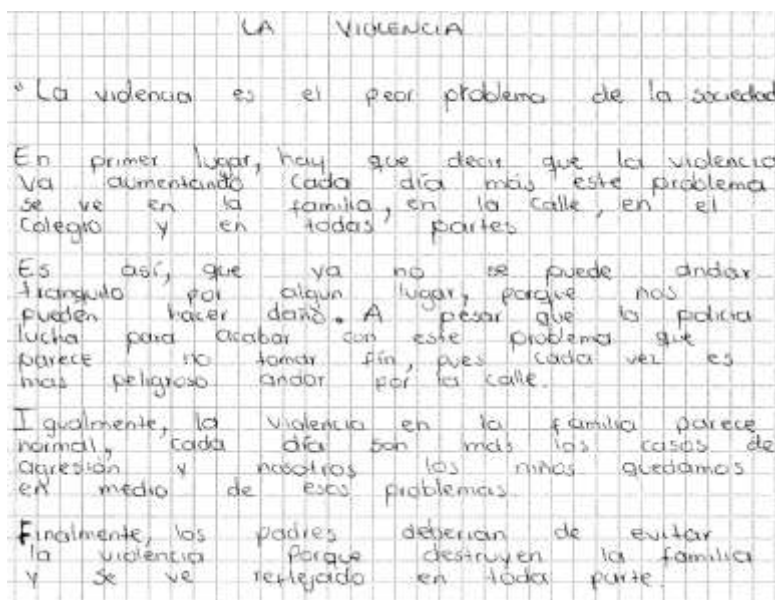 LA VIOLENCIA
"La violencia es el peor problema de la sociedad
En primer lugar, hay que decir que la violencia
va aumentando cada día más este problema
se ve en la familia, en la calle, en el
Colegio y en todas partes
Es así, que ya no se puede andar
tranquilo por algún lugar, porque nos
pueden hacer daño. A pesar que la policia
lucha para acabar con este problema que
parece no tomar fín, pues cada vez es
mas peligroso andar por la calle.
Igualmente, la violencia en la familia parece
normal, cada día son más los casos de
agresión y nosotros los niños quedamos
en medio de esos problemas.
Finalmente, los padres deberian de evitar
la violencia porque destruyen la familia
y se ve reflejado en toda parte.